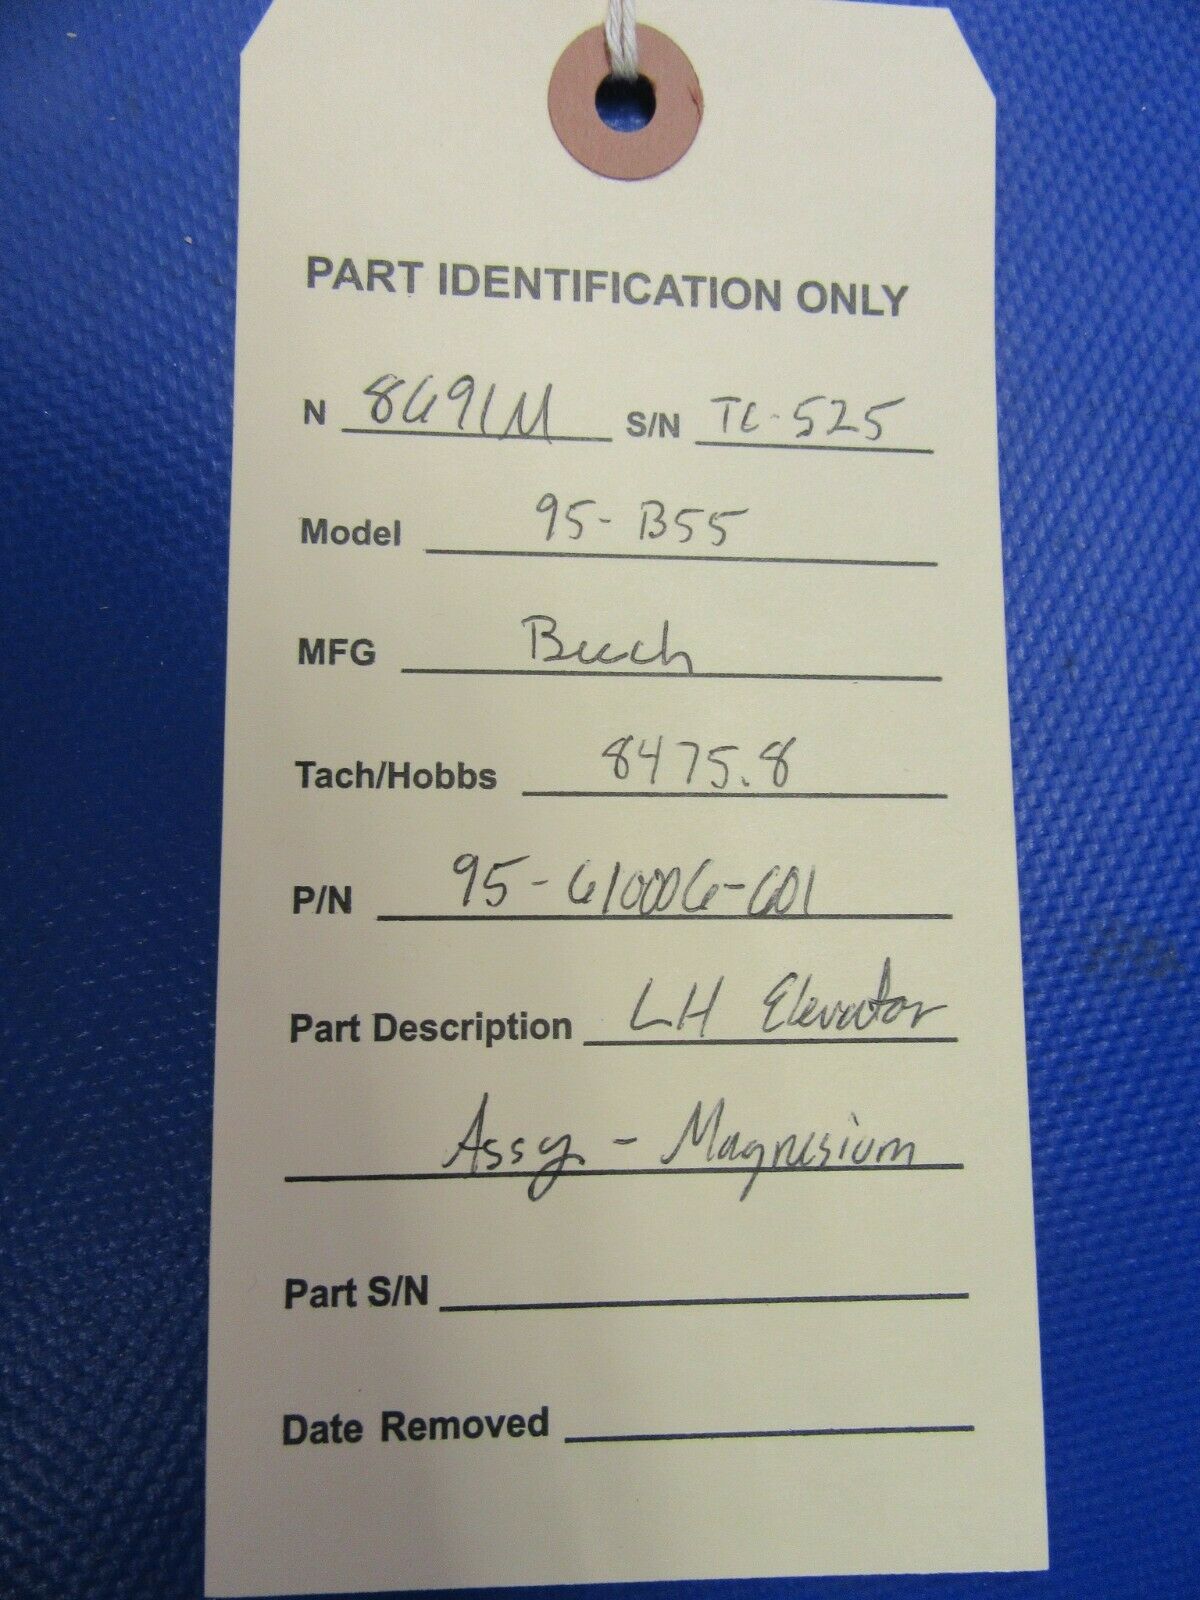 PART IDENTIFICATION ONLY
N 8691M S/N TC-525
Model 95-B55
MFG Beech
Tach/Hobbs 8475.8
P/N 95-610006-601
Part Description LH Elevator
Assy - Magnesium
Part S/N
Date Removed